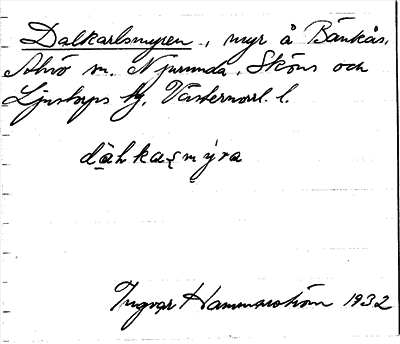 Dalkarlsmyren, myr å Bänkås,
Alnö m. Njurunda, Sköns och
Ljustorps tg, Västernorrl. l.
dähkasmýra
Ingvar Hammarström 1932